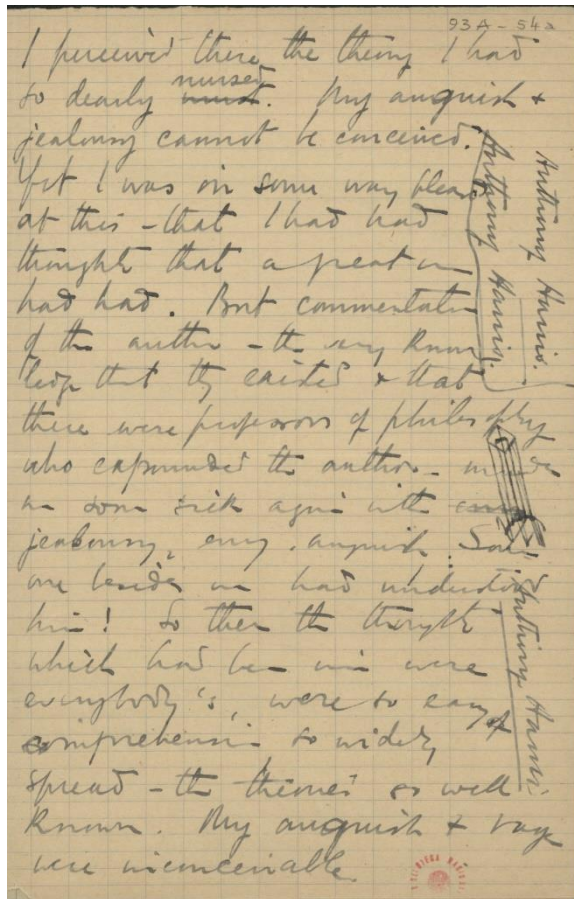 93A - 54a
I perceived there the theory I had
nursed
so dearly. My anguish &
jealousy cannot be conceived.
Yet I was in some way pleased
at this - that I had had
thoughts that a great one
had had. But commentators
of the author - the very know-
ledge that they existed & that
there were professors of philosophy
who expounded the author - made
me soon sick again with
jealousy, envy, anguish. Some
one besides me had understood
him! So then the thoughts
which had been mine were
everybody's, were so easy of
comprehension so widely
spread - the theories so well
known. My anguish & rage
were inconceivable
Anthony Harris.
Anthony Harris.
Anthony Harris.